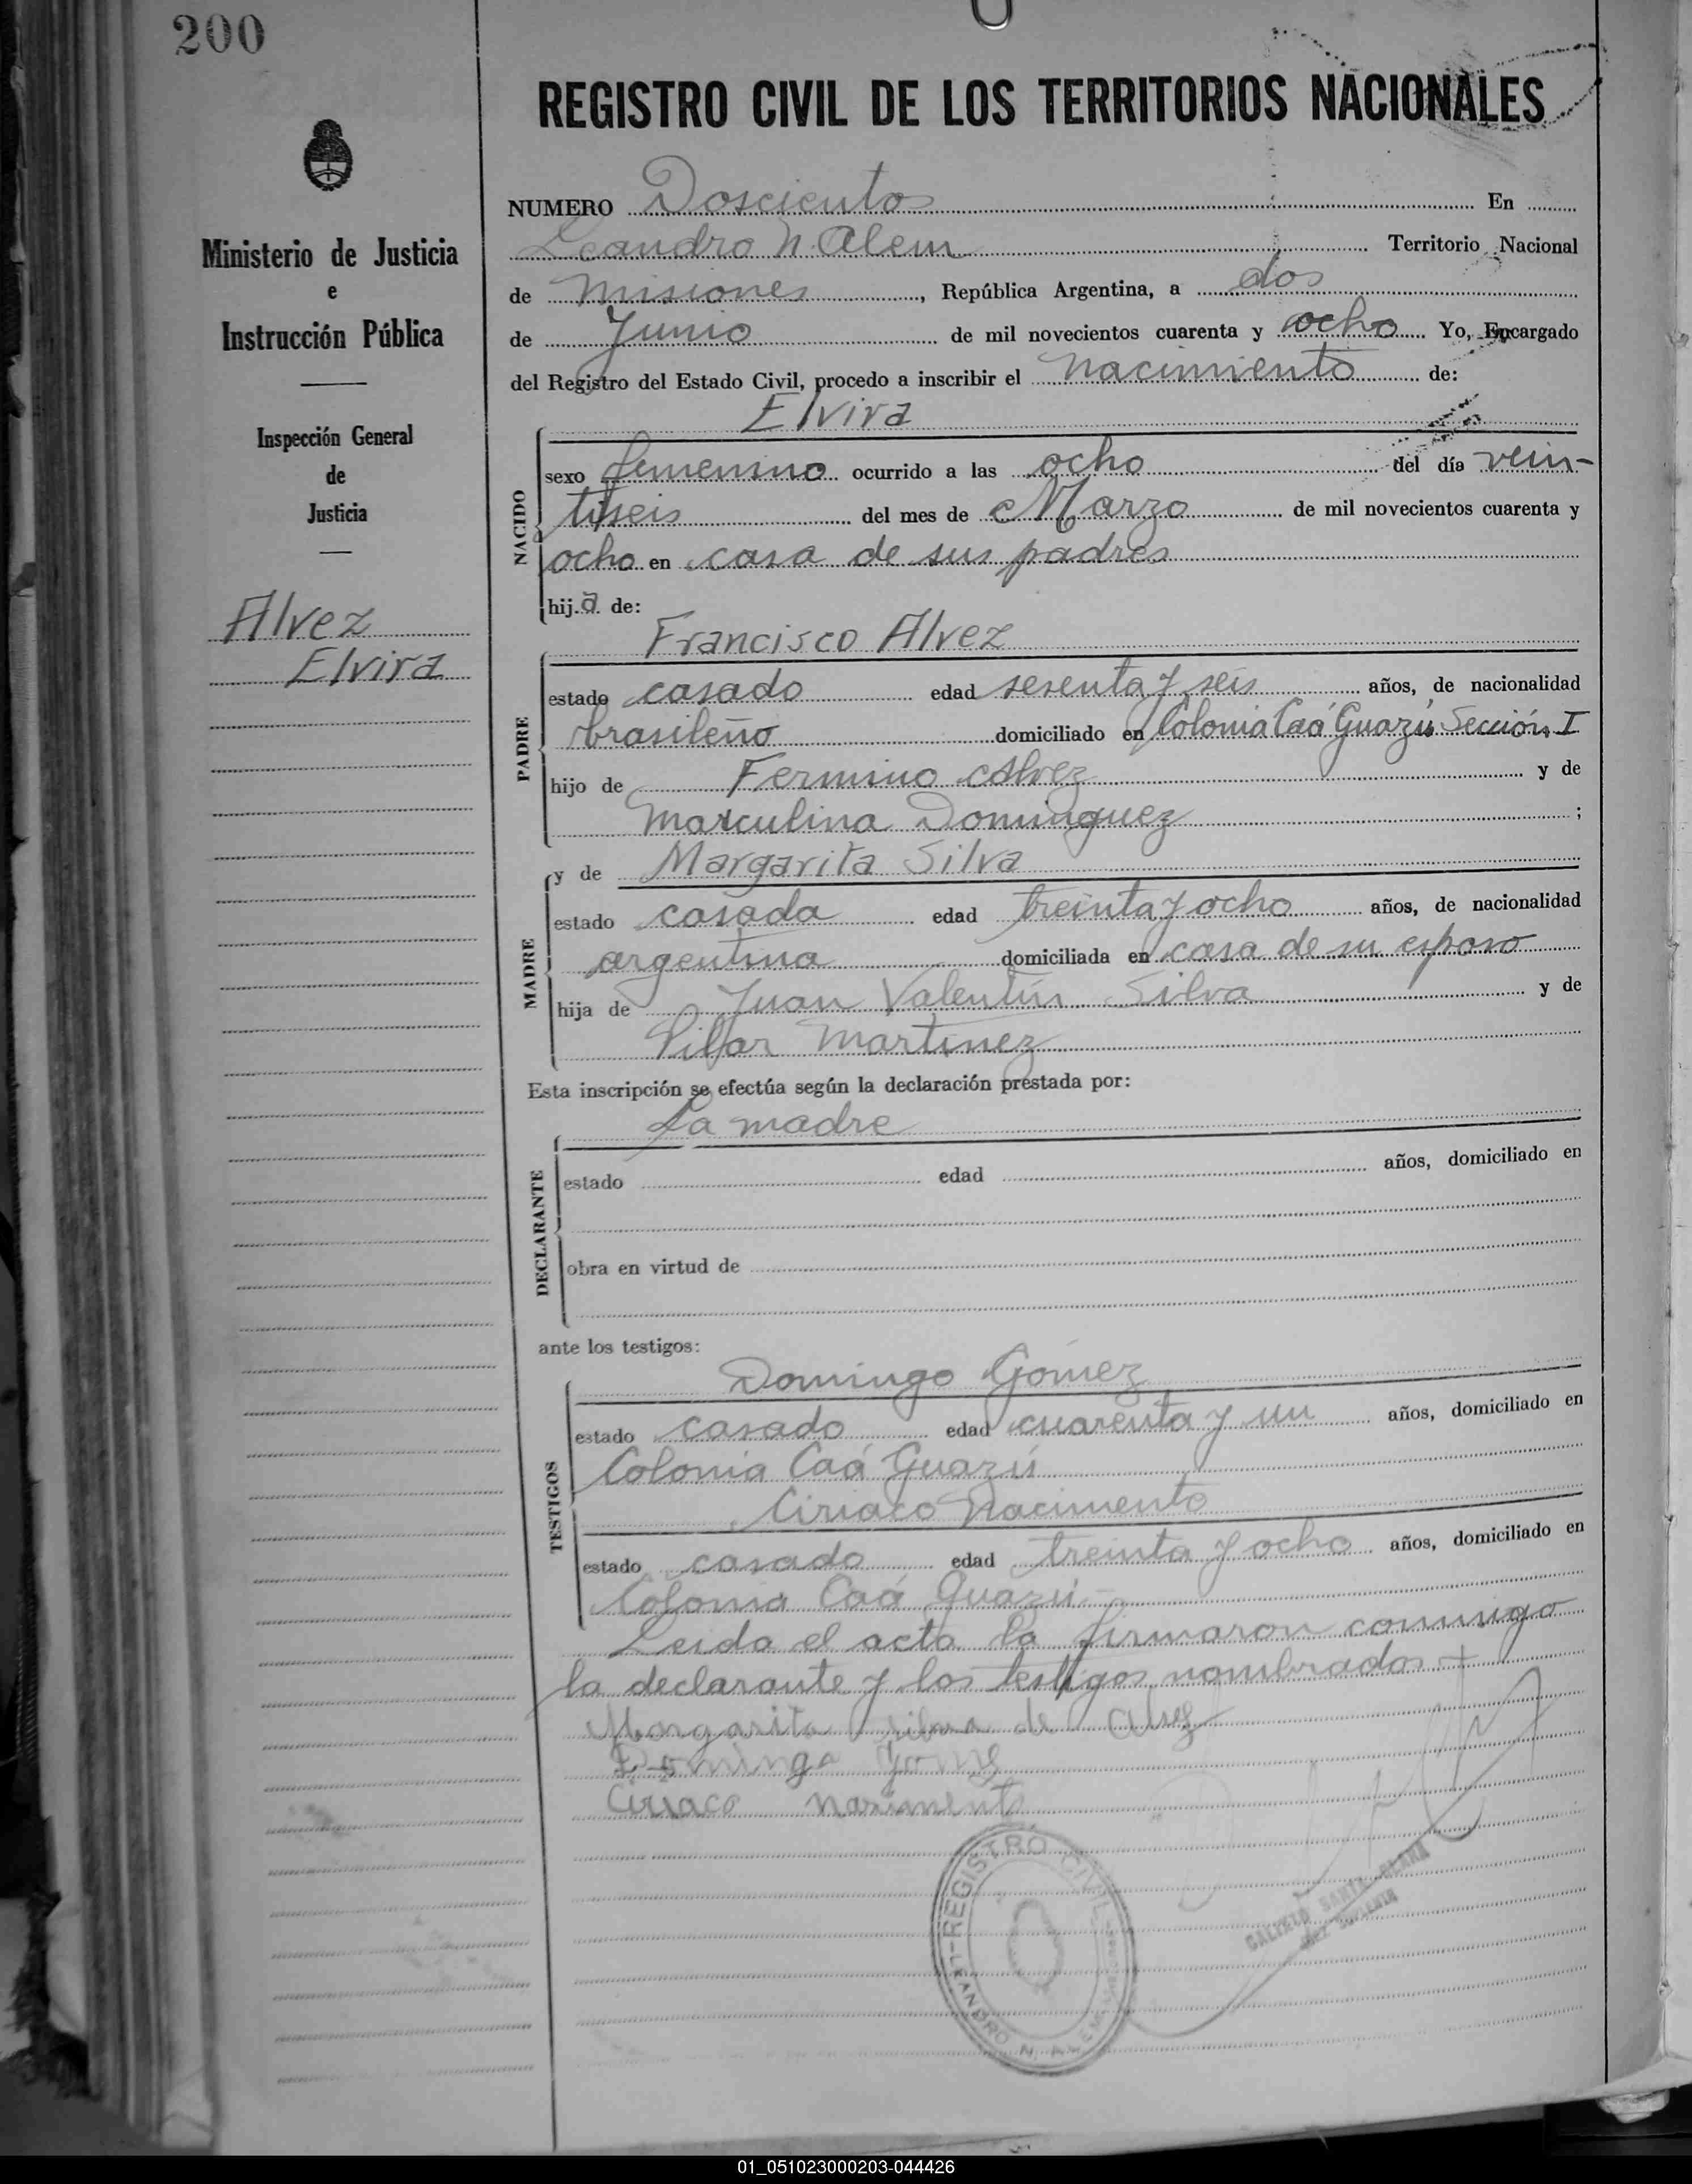 200
REGISTRO CIVIL DE LOS TERRITORIOS NACIONALES
Ministerio de Justicia
e
Instrucción Pública
Inspección General
de
Justicia
Alvez
Elvira
NUMERO Doscientos En
Leandro N. Alem Territorio Nacional
de Misiones, República Argentina, a dos
de Junio de mil novecientos cuarenta y ocho Yo, Encargado
del Registro del Estado Civil, procedo a inscribir el nacimiento de:
Elvira
NACIDO
sexo femenino ocurrido a las ocho del día vein-
tiseis del mes de Marzo de mil novecientos cuarenta y
ocho en casa de sus padres
hija de:
Francisco Alvez
PADRE
estado casado edad sesenta y seis años, de nacionalidad
brasileño domiciliado en Colonia Caá Guazú Sección I
hijo de Fermino Alvez y de
Marculina Dominguez ;
y de Margarita Silva
MADRE
estado casada edad treinta y ocho años, de nacionalidad
argentina domiciliada en casa de su esposo
hija de Juan Valentín Silva y de
Pilar Martinez
Esta inscripción se efectúa según la declaración prestada por:
La madre
DECLARANTE
estado edad años, domiciliado en
obra en virtud de
ante los testigos:
Domingo Gómez
TESTIGOS
estado casado edad cuarenta y un años, domiciliado en
Colonia Caá Guazú
Ciriaco Nacimento
estado casado edad treinta y ocho años, domiciliado en
Colonia Caá Guazú-
Leida el acta la firmaron conmigo
la declarante y los testigos nombrados
Margarita Silva de Alvez
Domingo Gomez
Ciriaco Nacimento
REGISTRO CIVIL
LEANDRO N. ALEM
CALIXTO SANTA CLARA
JUEZ SUPLENTE
01_051023000203-044426